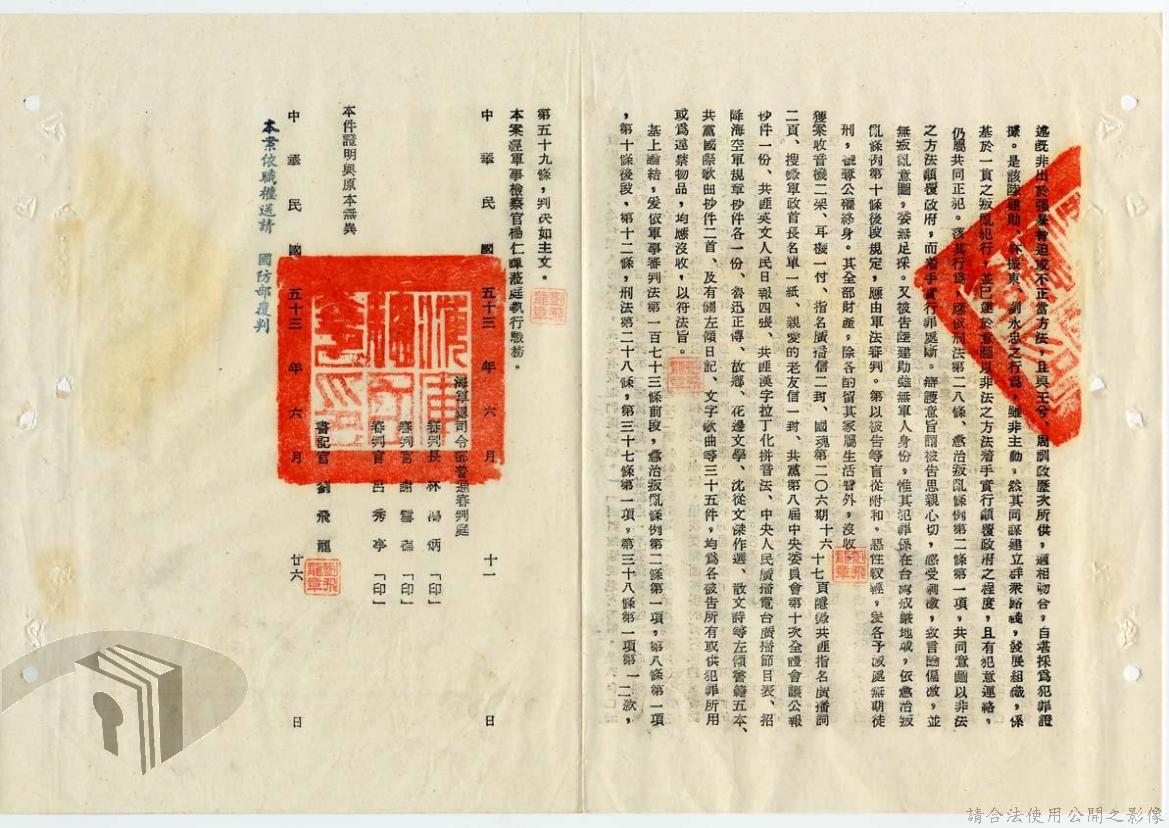 述旣非出於强暴脅迫或不正當方法，且與王兮、周訓政歷次所供，適相吻合，自甚採爲犯罪證
據。是該陸建勛、林振東、劉永忠之行爲，雖非主動，然其同謀建立群衆路綫，發展組織，係
基於一貫之叛亂犯行，並已達於意圖以非法之方法着手實行顚覆政府之程度，且有犯意連絡，
仍屬共同正犯。核其行爲，應依刑法第二八條、懲治叛亂條例第二條第一項，共同意圖以非法
之方法顚覆政府，而着手實行罪處斷。辯護意旨謂被告思親心切，感受刺激，致言論偏激，並
無叛亂意圖，委無足採。又被告陸建勛雖無軍人身份，惟其犯罪係在台灣戒嚴地域，依懲治叛
亂條例第十條後段規定，應由軍法審判。第以被告等盲從附和，惡性較輕，爰各予減處無期徒
刑，褫奪公權終身。其全部財產，除各酌留其家屬生活費外，沒收
獲案收音機二架、耳機一付、指名廣播信二封、國魂第二〇六期十六 十七頁隱微共匪指名廣播詞
二頁、搜錄軍政首長名單一紙、親愛的老友信一封、共黨第八屆中央委員會第十次全體會議公報
抄件一份、共匪英文人民日報四張、共匪漢字拉丁化拼音法、中央人民廣播電台廣播節目表、招
降海空軍規章抄件各一份、魯迅正傳、故鄉、花邊文學、沈從文傑作選、散文詩等左傾書籍五本、
共黨國際歌曲抄件二首、及有關左領日記、文字歌曲等三十五件，均爲各被告所有或供犯罪所用
或爲違禁物品，均應沒收，以符法旨。
基上論結，爰依軍事審判法第一百七十三條前段，懲治叛亂條例第二條第一項，第八條第一項
，第十條後段，第十二條，刑法第二十八條，第三十七條第一項，第三十八條第一項第一二款，
第五十九條，判決如主文。
本案經軍事檢察官楊仁暉蒞庭執行職務。
中華民國五十三年六月十一日
海軍總司令部普通審判庭
審判長 林 鴻 炳 「印」
審判官 謝 「印」
審判官 呂 秀 亭 「印」
本件證明與原本無異
書記官 劉 飛 龍
中華民國五十三年六月廿六日
本案依職權送請 國防部覆判
劉飛龍章
劉飛龍章
劉飛龍章
劉飛龍章
請合法使用公開之影像